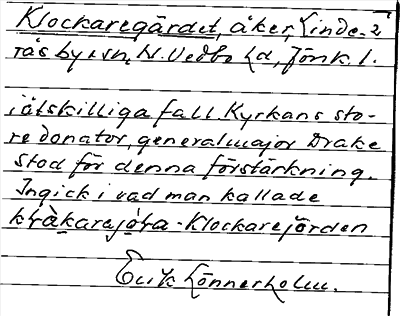 Klockaregärdet, åker, Linde-2
rås by & sn, N. Vedbo hd, Jönk. l.
i åtskilliga fall. Kyrkans sto-
re donator, generalmajor Drake
stod för denna förstärkning.
Ingick i vad man kallade
klåkarejöra - Klockarejorden
Erik Lönnerholm.